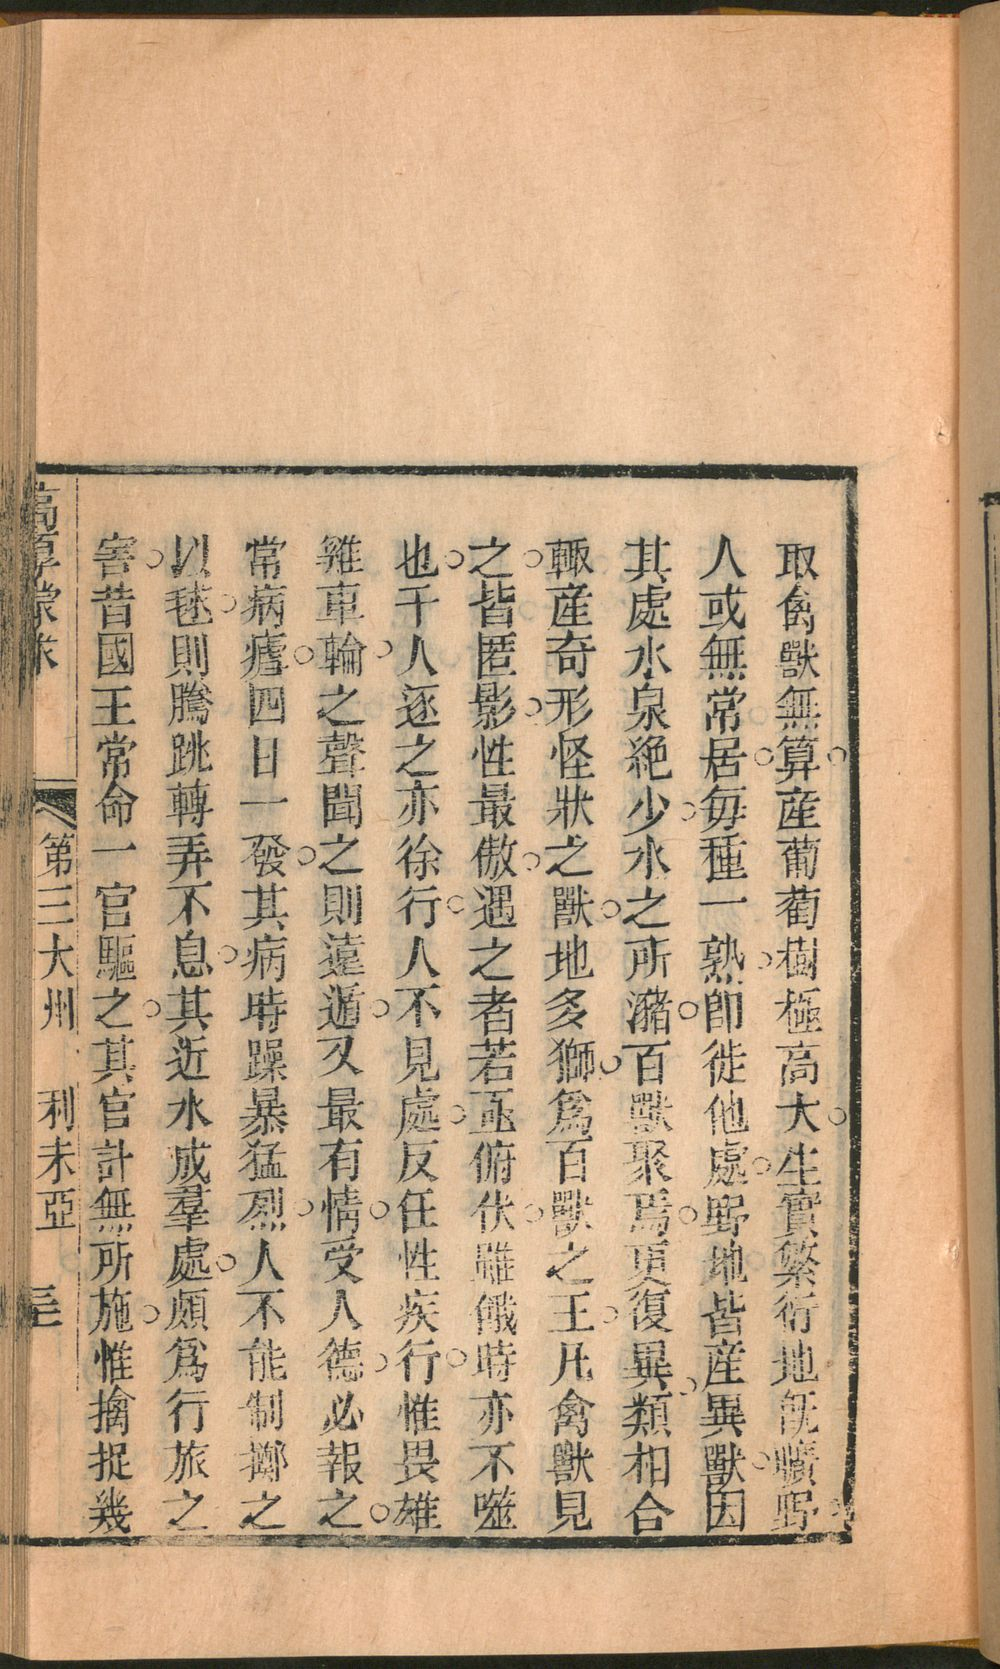 取禽獸無算產葡萄樹極高大生實繁衍地既曠野
人或無常居每種一熟即徙他處野地皆產異獸因
其處水泉絕少水之所瀦百獸聚焉更復異類相合
輙產奇形怪狀之獸地多獅爲百獸之王凡禽獸見
之皆匿影性最傲遇之者若亟俯伏雖餓時亦不噬
也千人逐之亦徐行人不見處反任性疾行惟畏雄
雞車輪之聲聞之則遠遁又最有情受人德必報之
常病瘧四日一發其病時躁暴猛烈人不能制擲之
以毬則騰跳轉弄不息其近水成羣處頗爲行旅之
害昔國王常命一官驅之其官計無所施惟擒捉幾
高厚蒙求 第三大州 利未亞